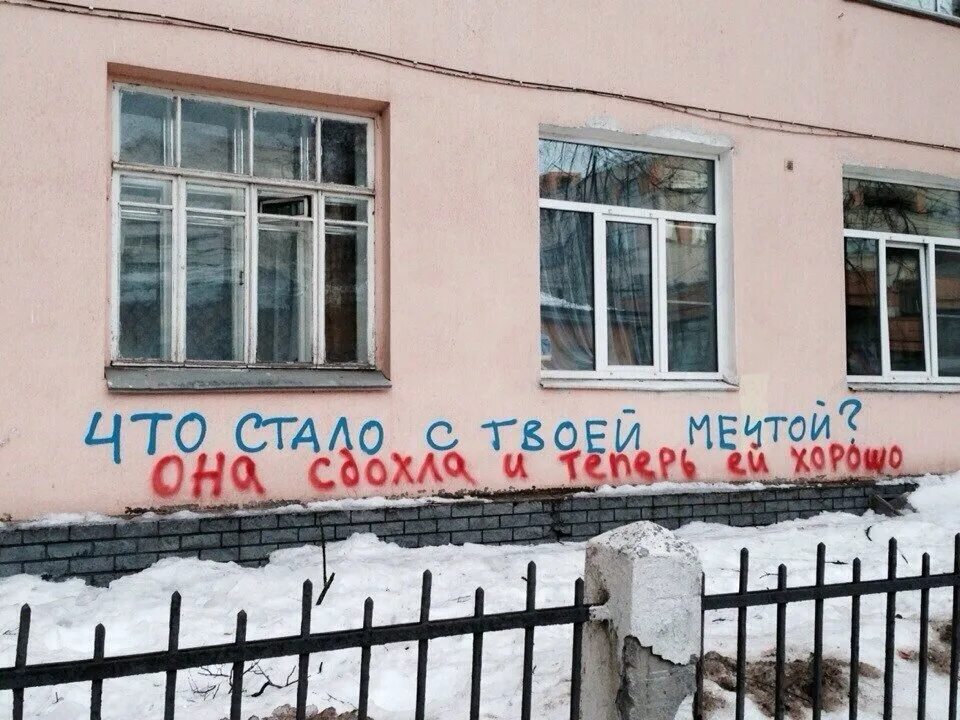 ЧТО СТАЛО С ТВОЕЙ МЕЧТОЙ?
ОНА СДОХЛА И ТЕПЕРЬ ЕЙ ХОРОШО